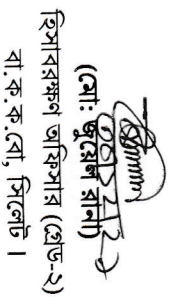 (মো: জুয়েল রানা)
হিসাবরক্ষণ অফিসার (গ্রেড-২)
বা.ক.ক.বো, সিলেট।